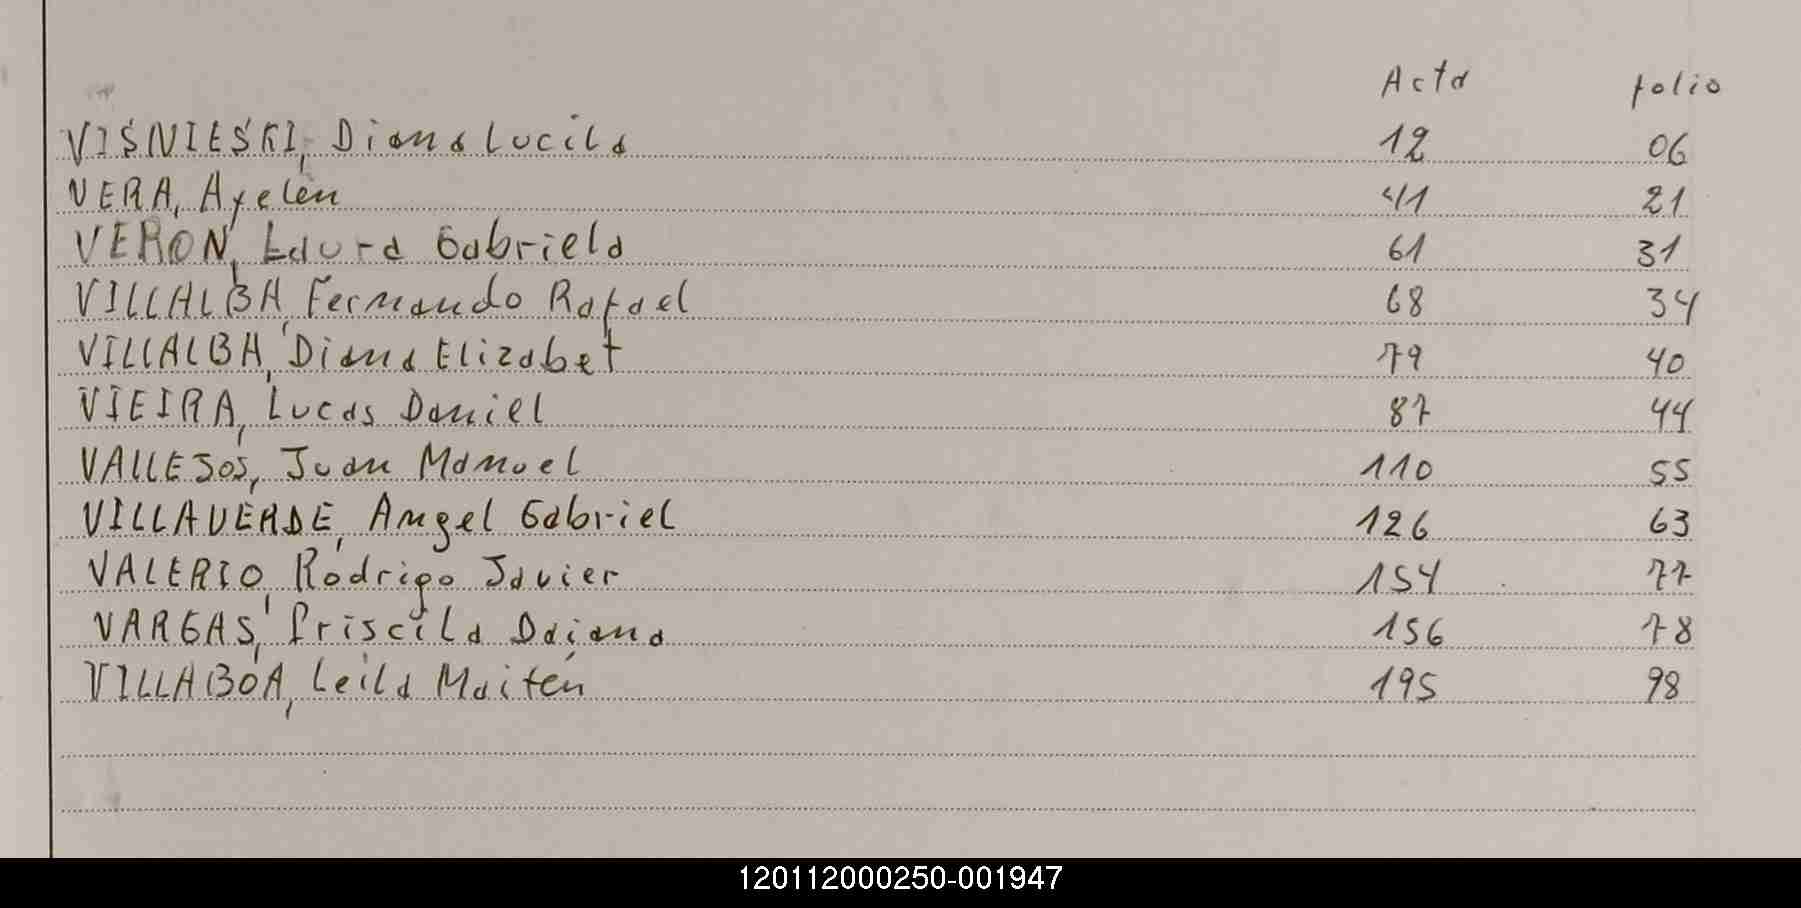 Acta folio
VISNIESKI, Diana Lucila 12 06
VERA, Ayelén 41 21
VERON, Laura Gabriela 61 31
VILLALBA, Fernando Rafael 68 34
VILLALBA, Diana Elizabet 79 40
VIEIRA, Lucas Daniel 87 44
VALLEJOS, Juan Manuel 110 55
VILLAVERDE, Angel Gabriel 126 63
VALERIO, Rodrigo Javier 154 77
VARGAS, Priscila Daiana 156 78
VILLABOA, Leila Maitén 195 98
120112000250-001947